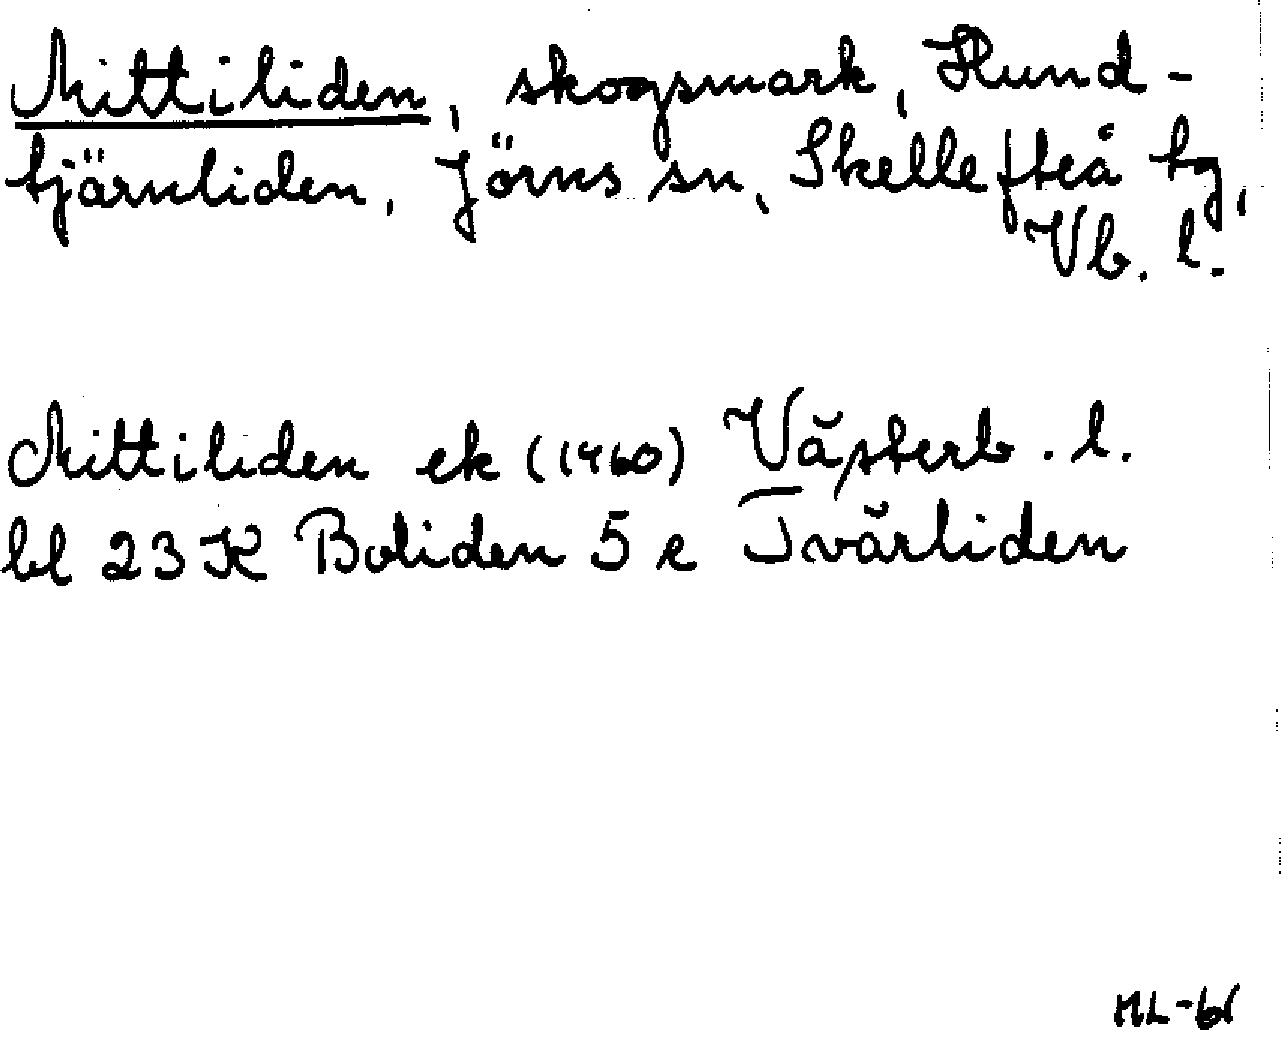 Mittiliden, skogsmark, Hund-
tjärnliden, Jörns sn, Skellefteå tg,
Vb. l.
Mittiliden ek (1960) Västerb. l.
bl 23 K Boliden 5 e Tvärliden
ML-61